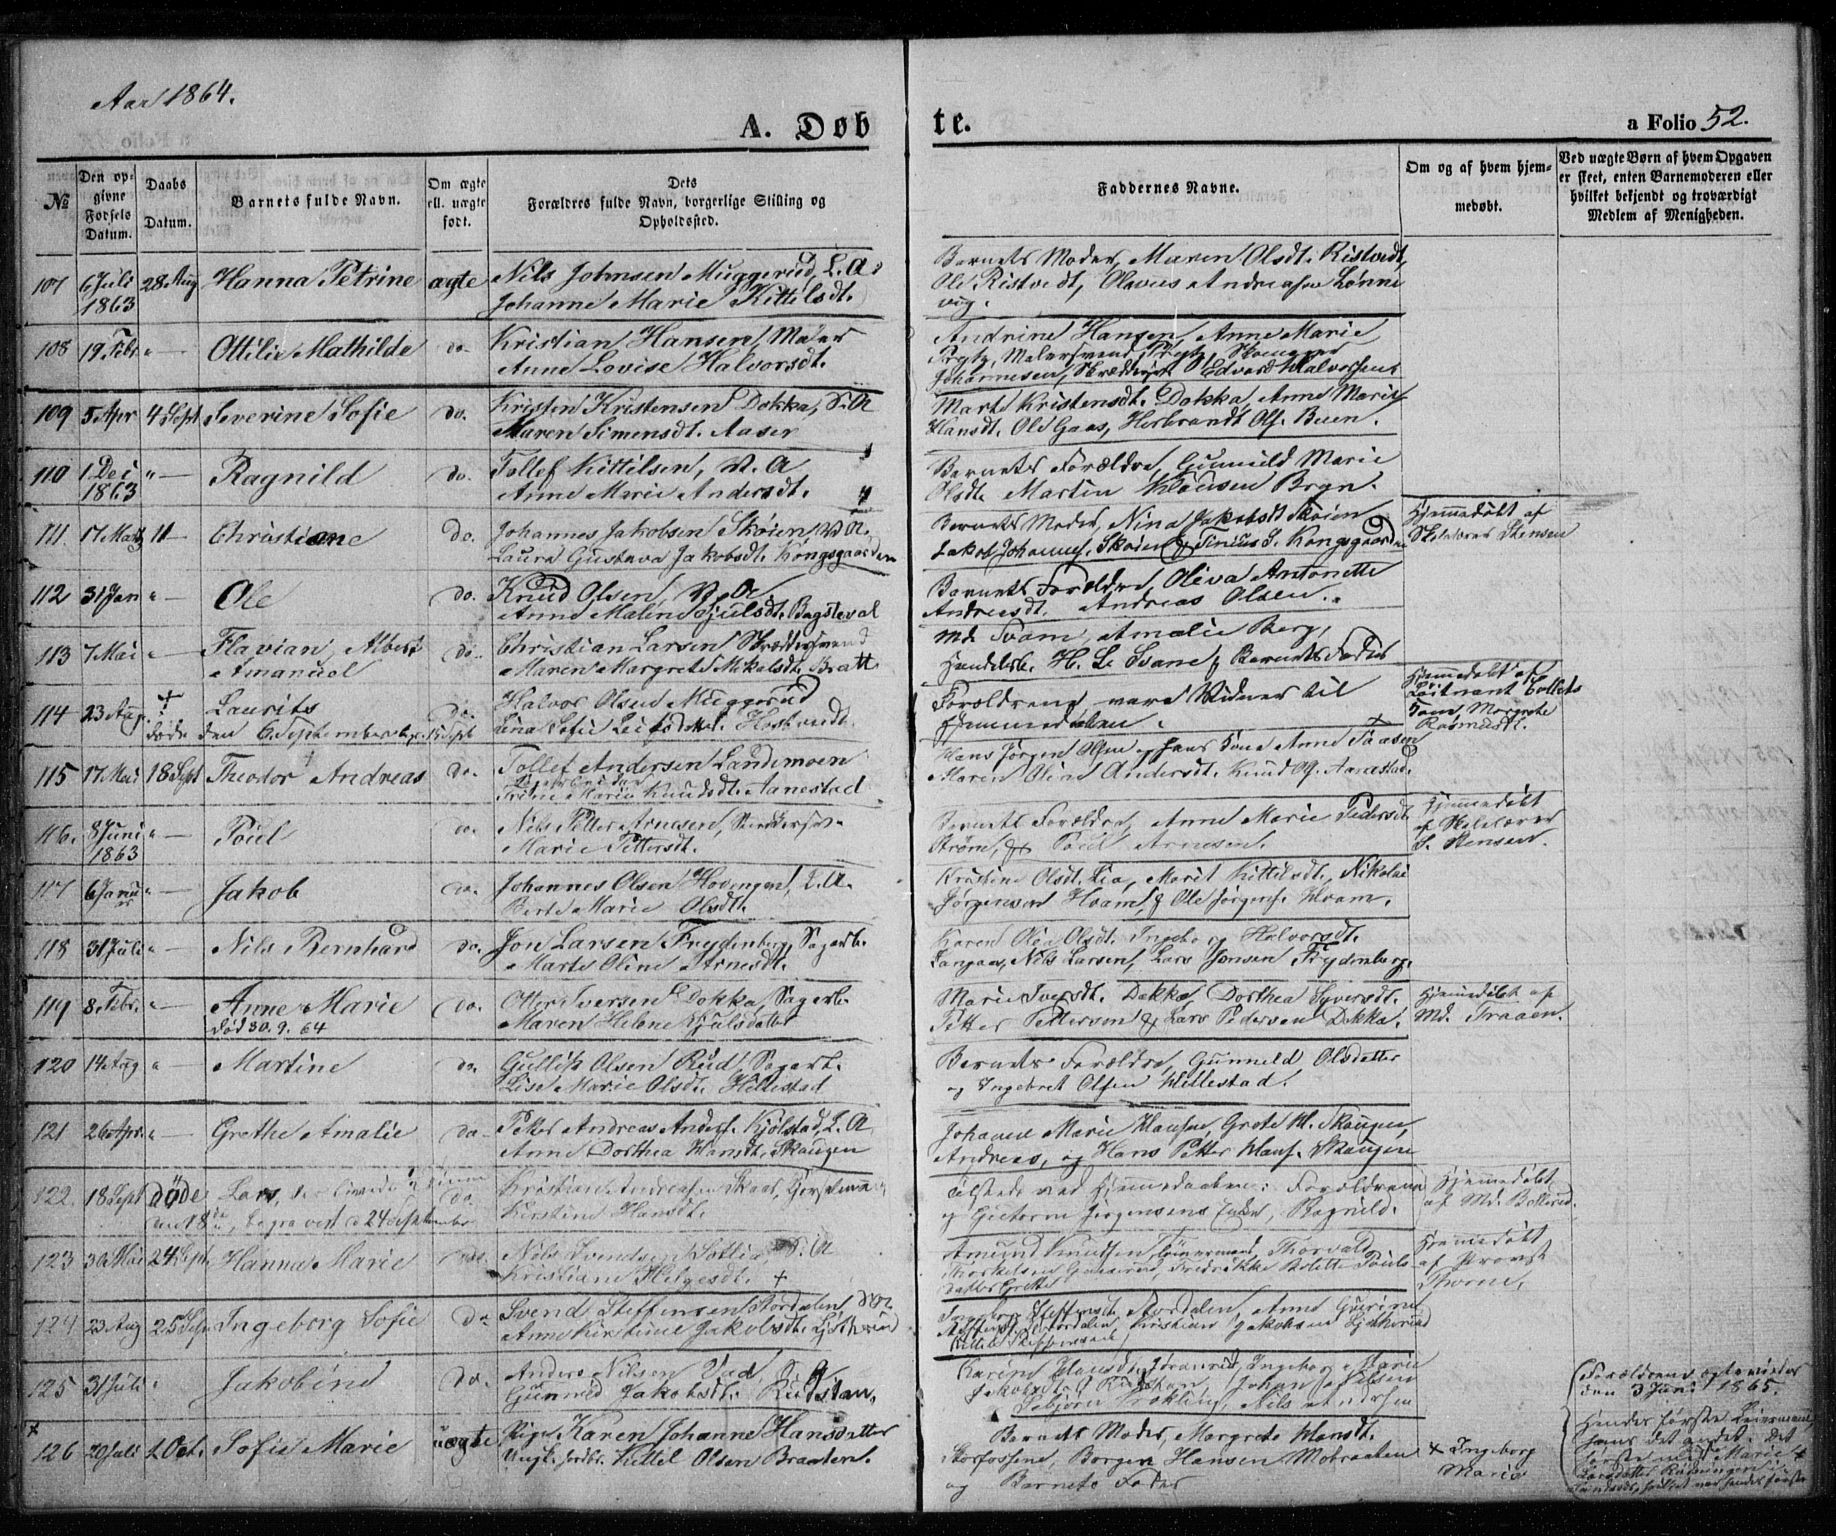 Aar 1864.
A. Döbte.
a Folio 52.
№
Den opgivne Fødsels Datum.
Daabs Datum.
Barnets fulde Navn.
Om ægte ell. uægte født.
Dets Forældres fulde Navn, borgerlige Stilling og Opholdssted.
Faddernes Navne.
Om og af hvem hjemmedøbt.
Ved uægte Børn af hvem Opgaven er skeet, enten Barnemoderen eller hvilket bekjendt og troværdigt Medlem af Menigheden.
107 6 Juli 1863 28 Aug Hanna Petrine ægte Nils Johnsen Muggerud, L. A.
Johanne Marie Kittilsdt.
Barnets Moder, Maren Olsdt. Ristvedt,
Ole Ristvedt, Olaves Andreasen Lønne
vig.
108 19 Febr „ — Ottilie Mathilde do. Kristian Hansen, Maler
Anne Lovise Halvorsdt.
Andrine Hansen, Anne Marie
Malersvend
Johannesen, Edvard Halvorsen
109 5 Apr 4 Sept Severine Sofie do. Kristen Kristensen Dokka, S. A
Maren Simensdt. Aaser
Marte Kristensdt. Dokka, Anne Marie
Hansdt. Ole Gaas, Herbrandt Ols. Been.
110 1 Dec 1863 „ — Ragnild do. Tollef Kittilsen, N. A
Anne Marie Andersdt.
Barnets Forældre, Gunnild Marie
Olsdt. Martin Klausen Bryn.
111. 17 Marts 11 Christiane do. Johannes Jakobsen Skøien, N. A.
Laura Gustava Jakobsdt. Kongsgaarden
Barnets Moder, Nina Jakobsdt Skøien
Jakob Johannes. Skøien & Tinius S. Kongsgaarden
Hjemmedøbt af
Skolelærer Stensen
112 31 Jan „ — Ole do. Knud Olsen, N. A.
Anne Malene Hjulsdt. Bagstevol
Barnets Forældre, Oliva Antonette
Andreasdt. Andreas Olsen.
113 7 Mai „ — Flavian Albert
Amanuel do. Christian Larsen Skræddersvend
Maren Margrete Mikalsdt. Bratt
Md. Svam, Amalie Berg,
Handelsb. H. L. Svane & Barnets Fader
114 23 Aug. + Laurits do. Halvor Olsen Muggerud
døde den 6 September
Lina Sofie Leifsdatter
Forældrene vare Vidner til
Hjemmedaaben.
Hjemmedøbt af
Margrete
Rasmusdt.
115 17 Mai 18 Sept Theodor Andreas do. Tollef Andersen Landemoen
Trine Marie Knudsdt. Aanestad
Hans Jørgen Olsen og hans Kone Anne
Maren Oline Andersdt. Knud Og. Aanestad.
116. 8 Juni 1863 „ — Poul do. Nils Petter Arnesen,
Marie Pettersdt.
Barnets Forældre, Anne Marie Pedersdt
Strøm, & Poul Arnesen.
Hjemmedøbt
af Skolelærer
S. Stensen.
117 6 Januar „ — Jakob do. Johannes Olsen Hovengen, L. A.
Berte Marie Olsdt.
Kristine Olsdt. Lia, Marit Kittilsdt, Nikolai
Jørgensen Hvam, & Ole Jørgens. Hvam.
118 31 Juli „ — Nils Bernhard do. Jon Larsen Frydenberg, Sagarb.
Marte Oline Arnesdt.
Karen Olea Olsdt. Ingebo og Halvorsdt.
Langaas, Nils Larsen, Lars Jonsen Frydenberg.
119 8 Febr. „ — Anne Marie do. Otter Iversen Dokka, Sagarb.
Død 30.9.64 Maren Helene Hjulsdatter
Marie Iversdt. Dokka, Dorthea Syversdt.
Petter Pettersen & Lars Pedersen Dokka.
Hjemmedøbt af
Md. Traaen.
120 14 Aug „ — Martine do. Gullik Olsen Rud, Sagarb.
Lise Marie Olsdt. Hillestad
Barnets Forældre, Gunneld Olsdatter
og Ingebret Olsen Hillestad.
121 26 Apr. „ — Grethe Amalie do. Peter Andreas Anders. Kjølstad, L. A
Anne Dorthea Hansdt. Skaugen
Johanne Marie Hansen, Grete H. Skaugen,
Andreas, og Hans Petter Hans. Skaugen
122. 18 Sept døde Lars, do.
den 18de, begravet d. 24 September
Kristian Andreasen
Kirstine Hansdt.
Tilstede ved Hjemmedaaben: Forældrene
og Jørgensens Enke, Ragnild.
Hjemmedøbt
af Md. Bollerud.
123 30 Mai 24 Sept. Hanna Marie do. Nils Svendsen Sætlia, S. A
Kristiane Helgesdt. +
Amund Knudsen, Thorvald
Fredrikke Bolette Pouls
datter
Hjemmedøbt
af Provst
Thorne.
124 23 Aug 25 Sept Ingeborg Sofie do. Svend Steffensen Stordalen, NA
Anne Kirstine Jakobsdt.
Ingeborg Steffensdt. Stordalen, Anne Gurine
Kristian Jakobsen
125 31 Juli „ Jakobine do. Anders Nilsen Ved, S. A.
Gunned Jakobsdt. Rudstan.
Karen Hansdt. Ingeborg Marie
Jakobsdt. Rudstan, Johan Nilsen
Nils Andersen
Forældrene
den 3 Juni 1865.
× 126 20 Juli 2 Oct. Sofie Marie uægte Pige Karen Johanne Hansdatter
Ungk. Kittel Olsen Braaten.
Barnets Moder, Margrete Hansdt.
Storfossene, Borger Hansen Mobraaten
og Barnets Fader
× Ingeborg
Marie
Hendes første Leiermaal,
hans det andet. Det
første med Marie